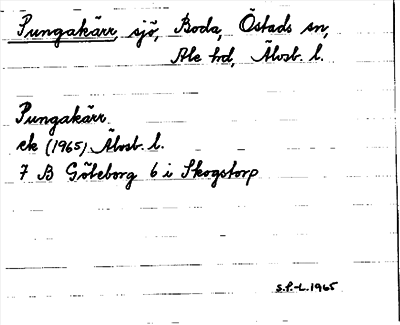 Pungakärr, sjö, Boda, Östads sn,
Ale hd, Älvsb. l.
Pungakärr
ek (1965) Älvsb. l.
7 B Göteborg 6 i Skogstorp
S.P.-L. 1965